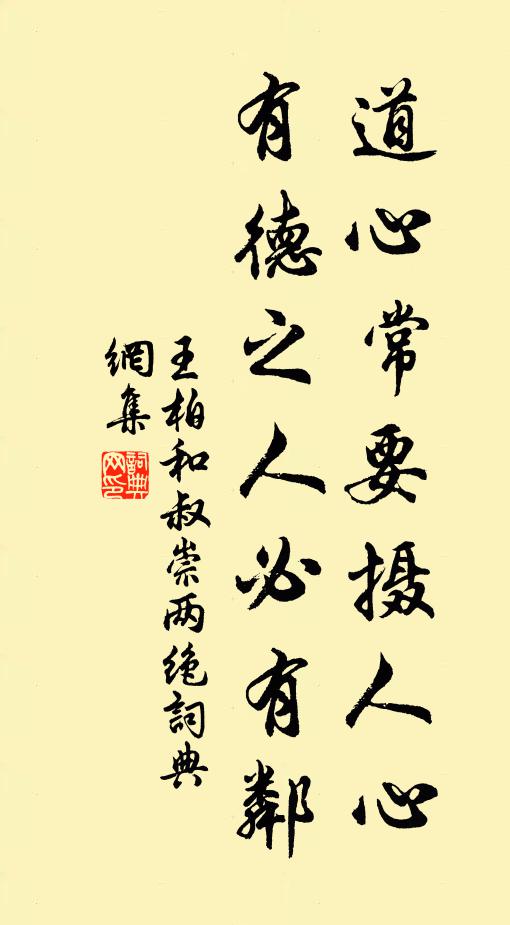 道心常要摄人心
有德之人必有鄰
王柏和叔崇两绝詞典
網集
詞典
网印